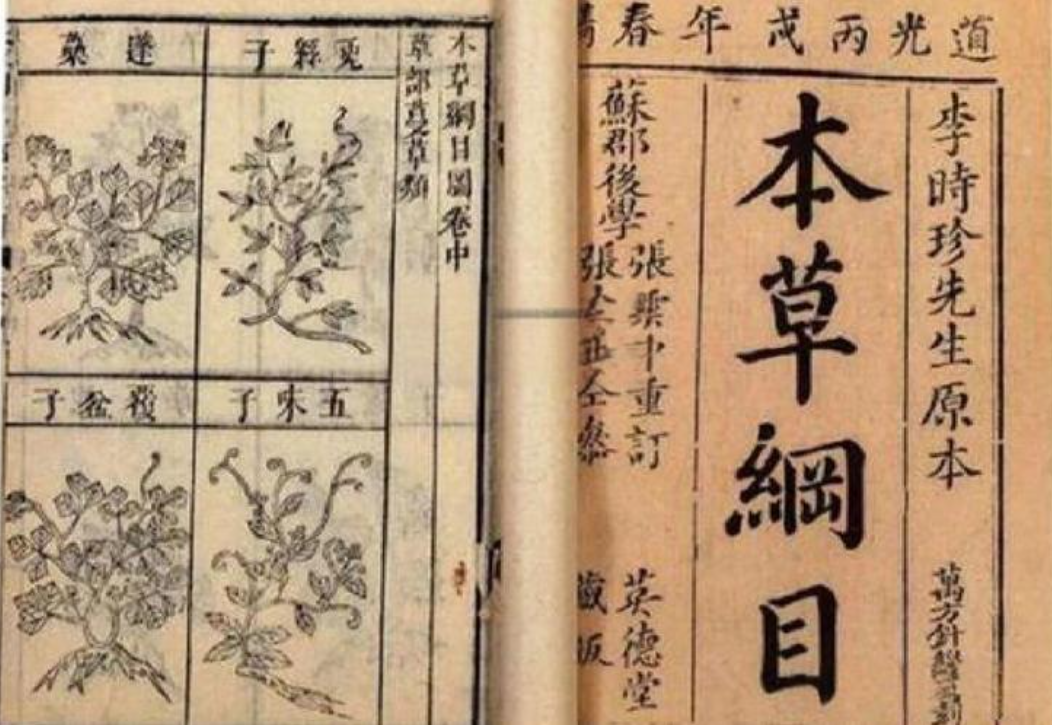 道光丙戌年春
李時珍先生原本
萬方針線
本草綱目
蘇郡後學
張 中重訂
張 仝參
英德堂
藏版
本草綱目圖卷中
草部蔓草類
兔絲子
蓬蘽
五味子
覆盆子